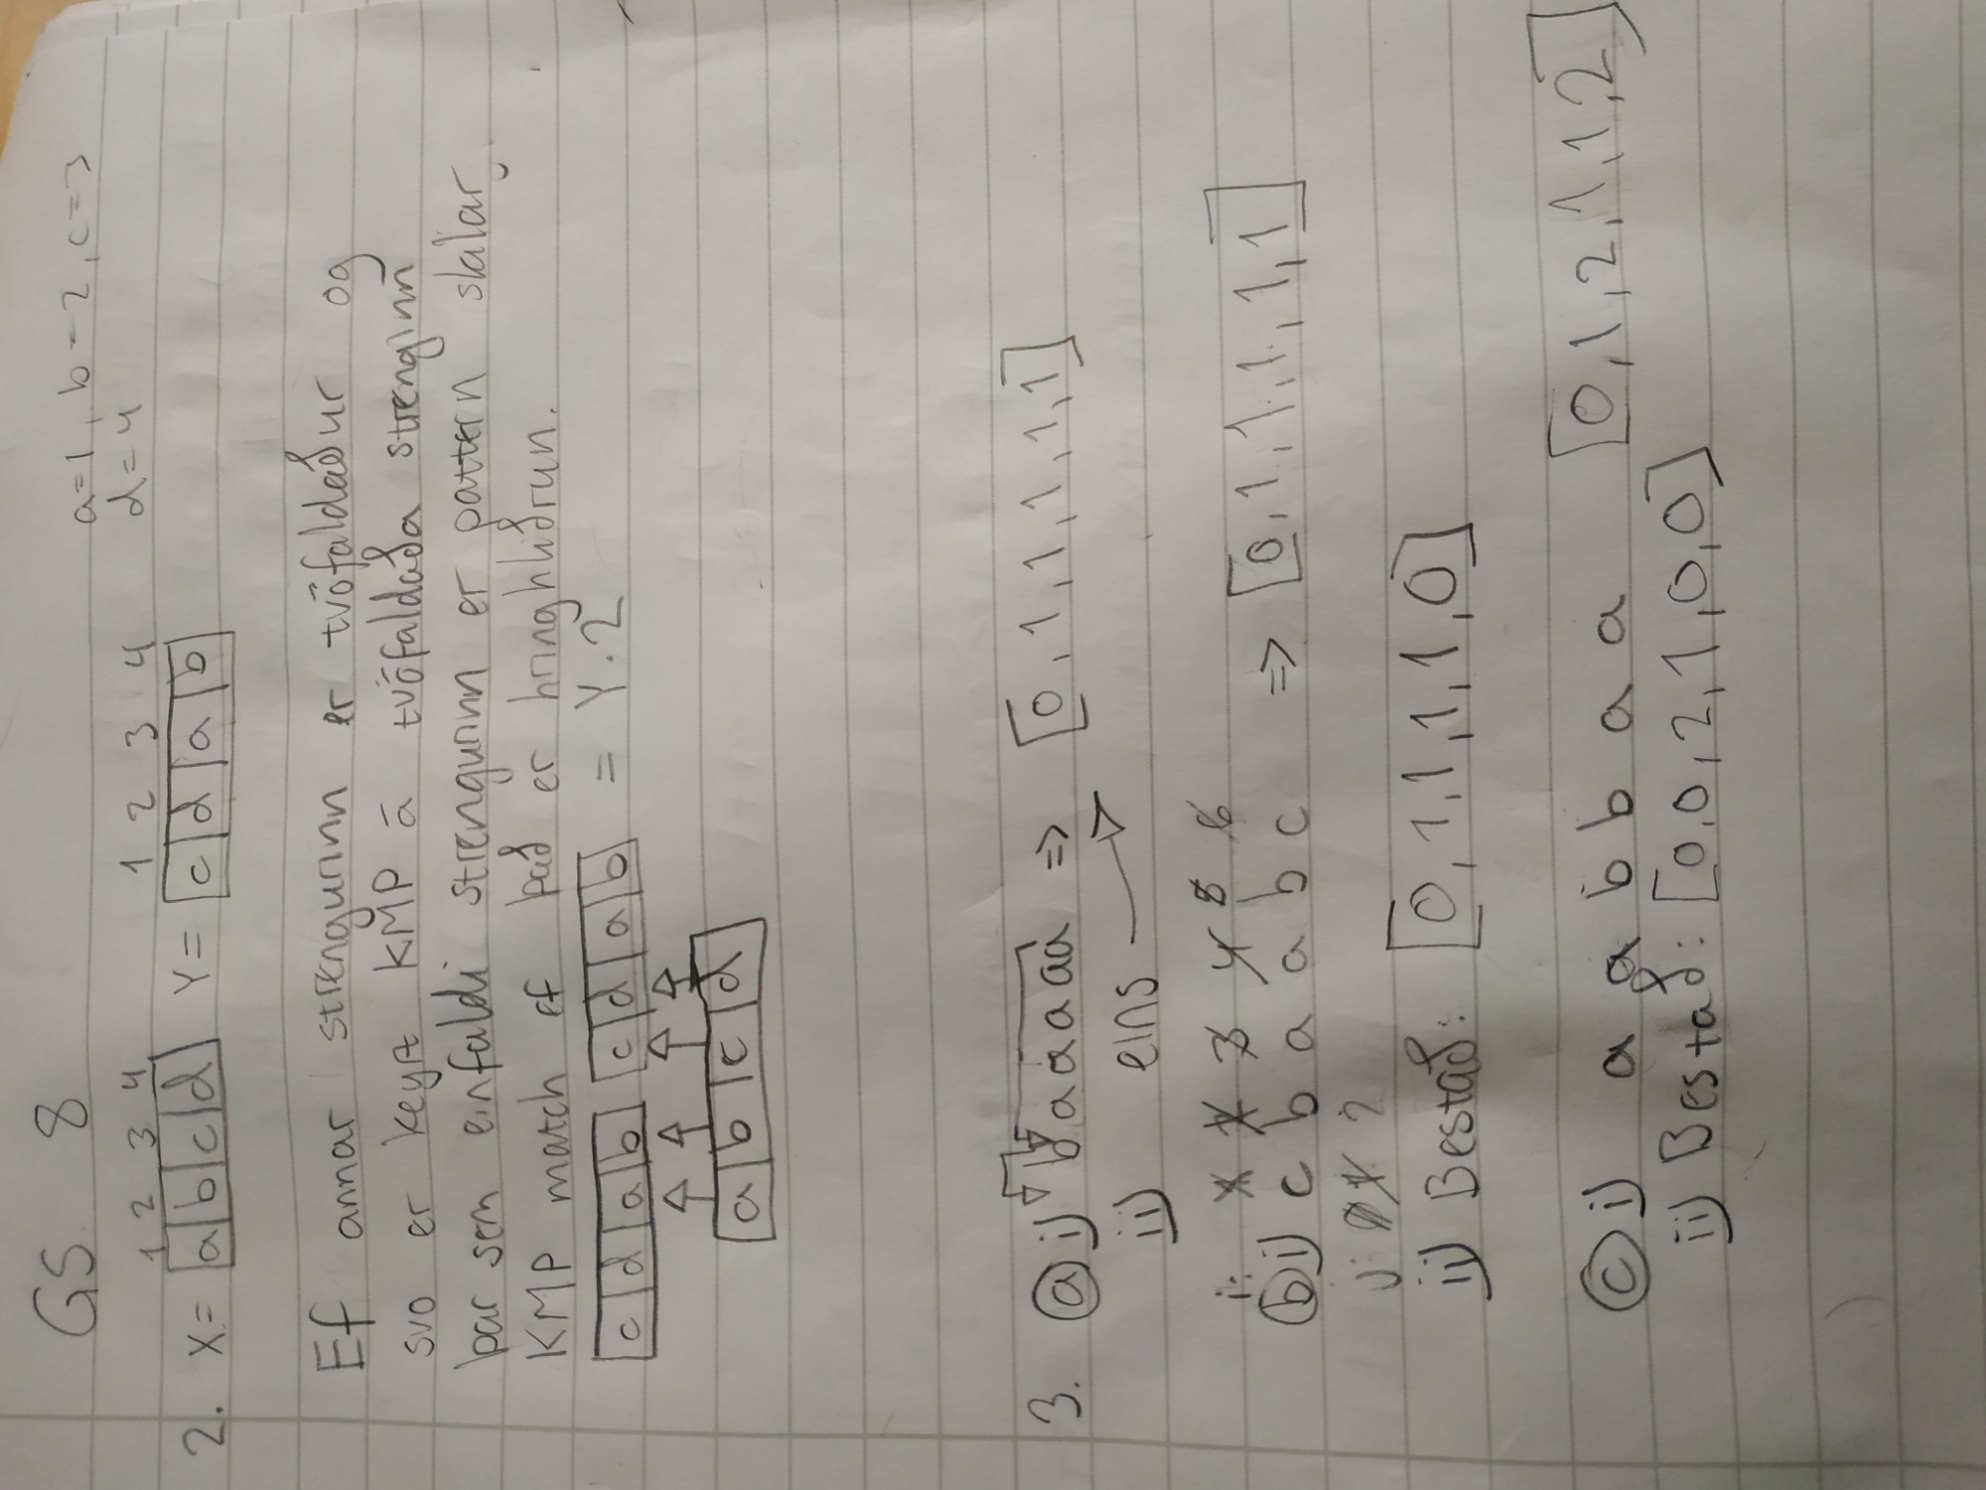 GS 8
a=1, b=2, c=3
d=4
1 2 3 4 1 2 3 4
2. X= a b c d Y= c d a b
Ef annar strengurinn er tvöfaldaður og
svo er keyrt KMP á tvöfaldaða strenginn
þar sem einfaldi strengurinn er pattern skilar
KMP match ef það er hringhliðrun.
c d a b c d a b = Y.2
a b c d
3. a i) baaaaa => [0,1,1,1,1,1]
ii) eins
i: 1 2 3 4 5 6
b i) c b a a b c => [0,1,1,1,1,1]
j: 0 1 2
ii) Bestað: [0,1,1,1,1,0]
c i) a a b b a a [0,1,2,1,1,2]
ii) Bestað: [0,0,2,1,0,0]